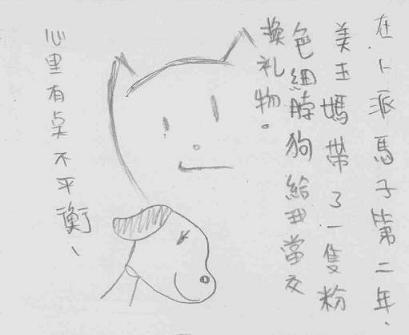 在卜派馬子第二年、
美玉媽帶了一隻粉
色細脖狗給田當交
換礼物。
心里有桌不平衡、